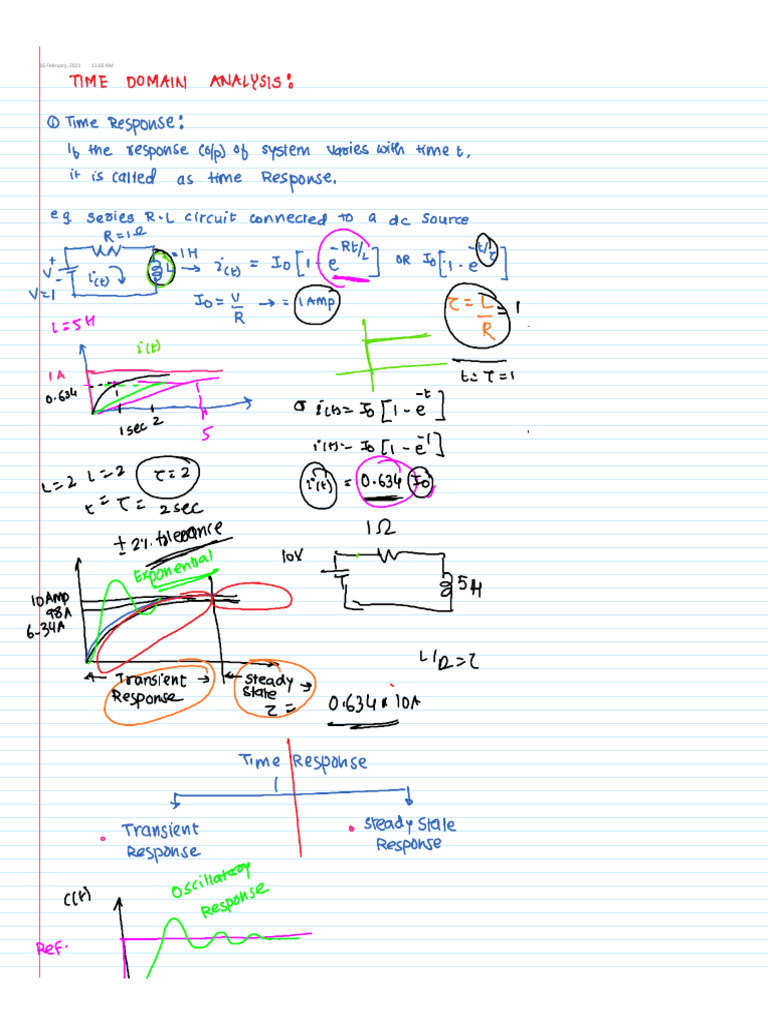 16 February, 2021 11:02 AM
TIME DOMAIN ANALYSIS:
① Time Response:
If the response (o/p) of system varies with time t,
it is called as time Response.
eg series R-L circuit connected to a dc source
R=1Ω
+ V - V=1 i(t) L =1H → i(t) = I0 [1 - e^-Rt/L] OR I0 [1 - e^-t/τ]
I0 = V/R → = 1 Amp
τ = L/R = 1
L = 5H
t = τ = 1
i(t)
1A
0.634
1
1 sec 2
5
i(t) = I0 [1 - e^-t]
i(t) = I0 [1 - e^-1]
i(t) = 0.634 I0
L=2 L=2 τ=2
t = τ = 2 sec
± 2% tolerance
Exponential
10 Amp
98A
6-34A
1Ω
10V
5H
L/R = τ
← Transient Response →
← Steady State →
τ =
0.634 x 10A
Time Response
Transient Response
Steady State Response
C(t)
Oscillatory Response
Ref.